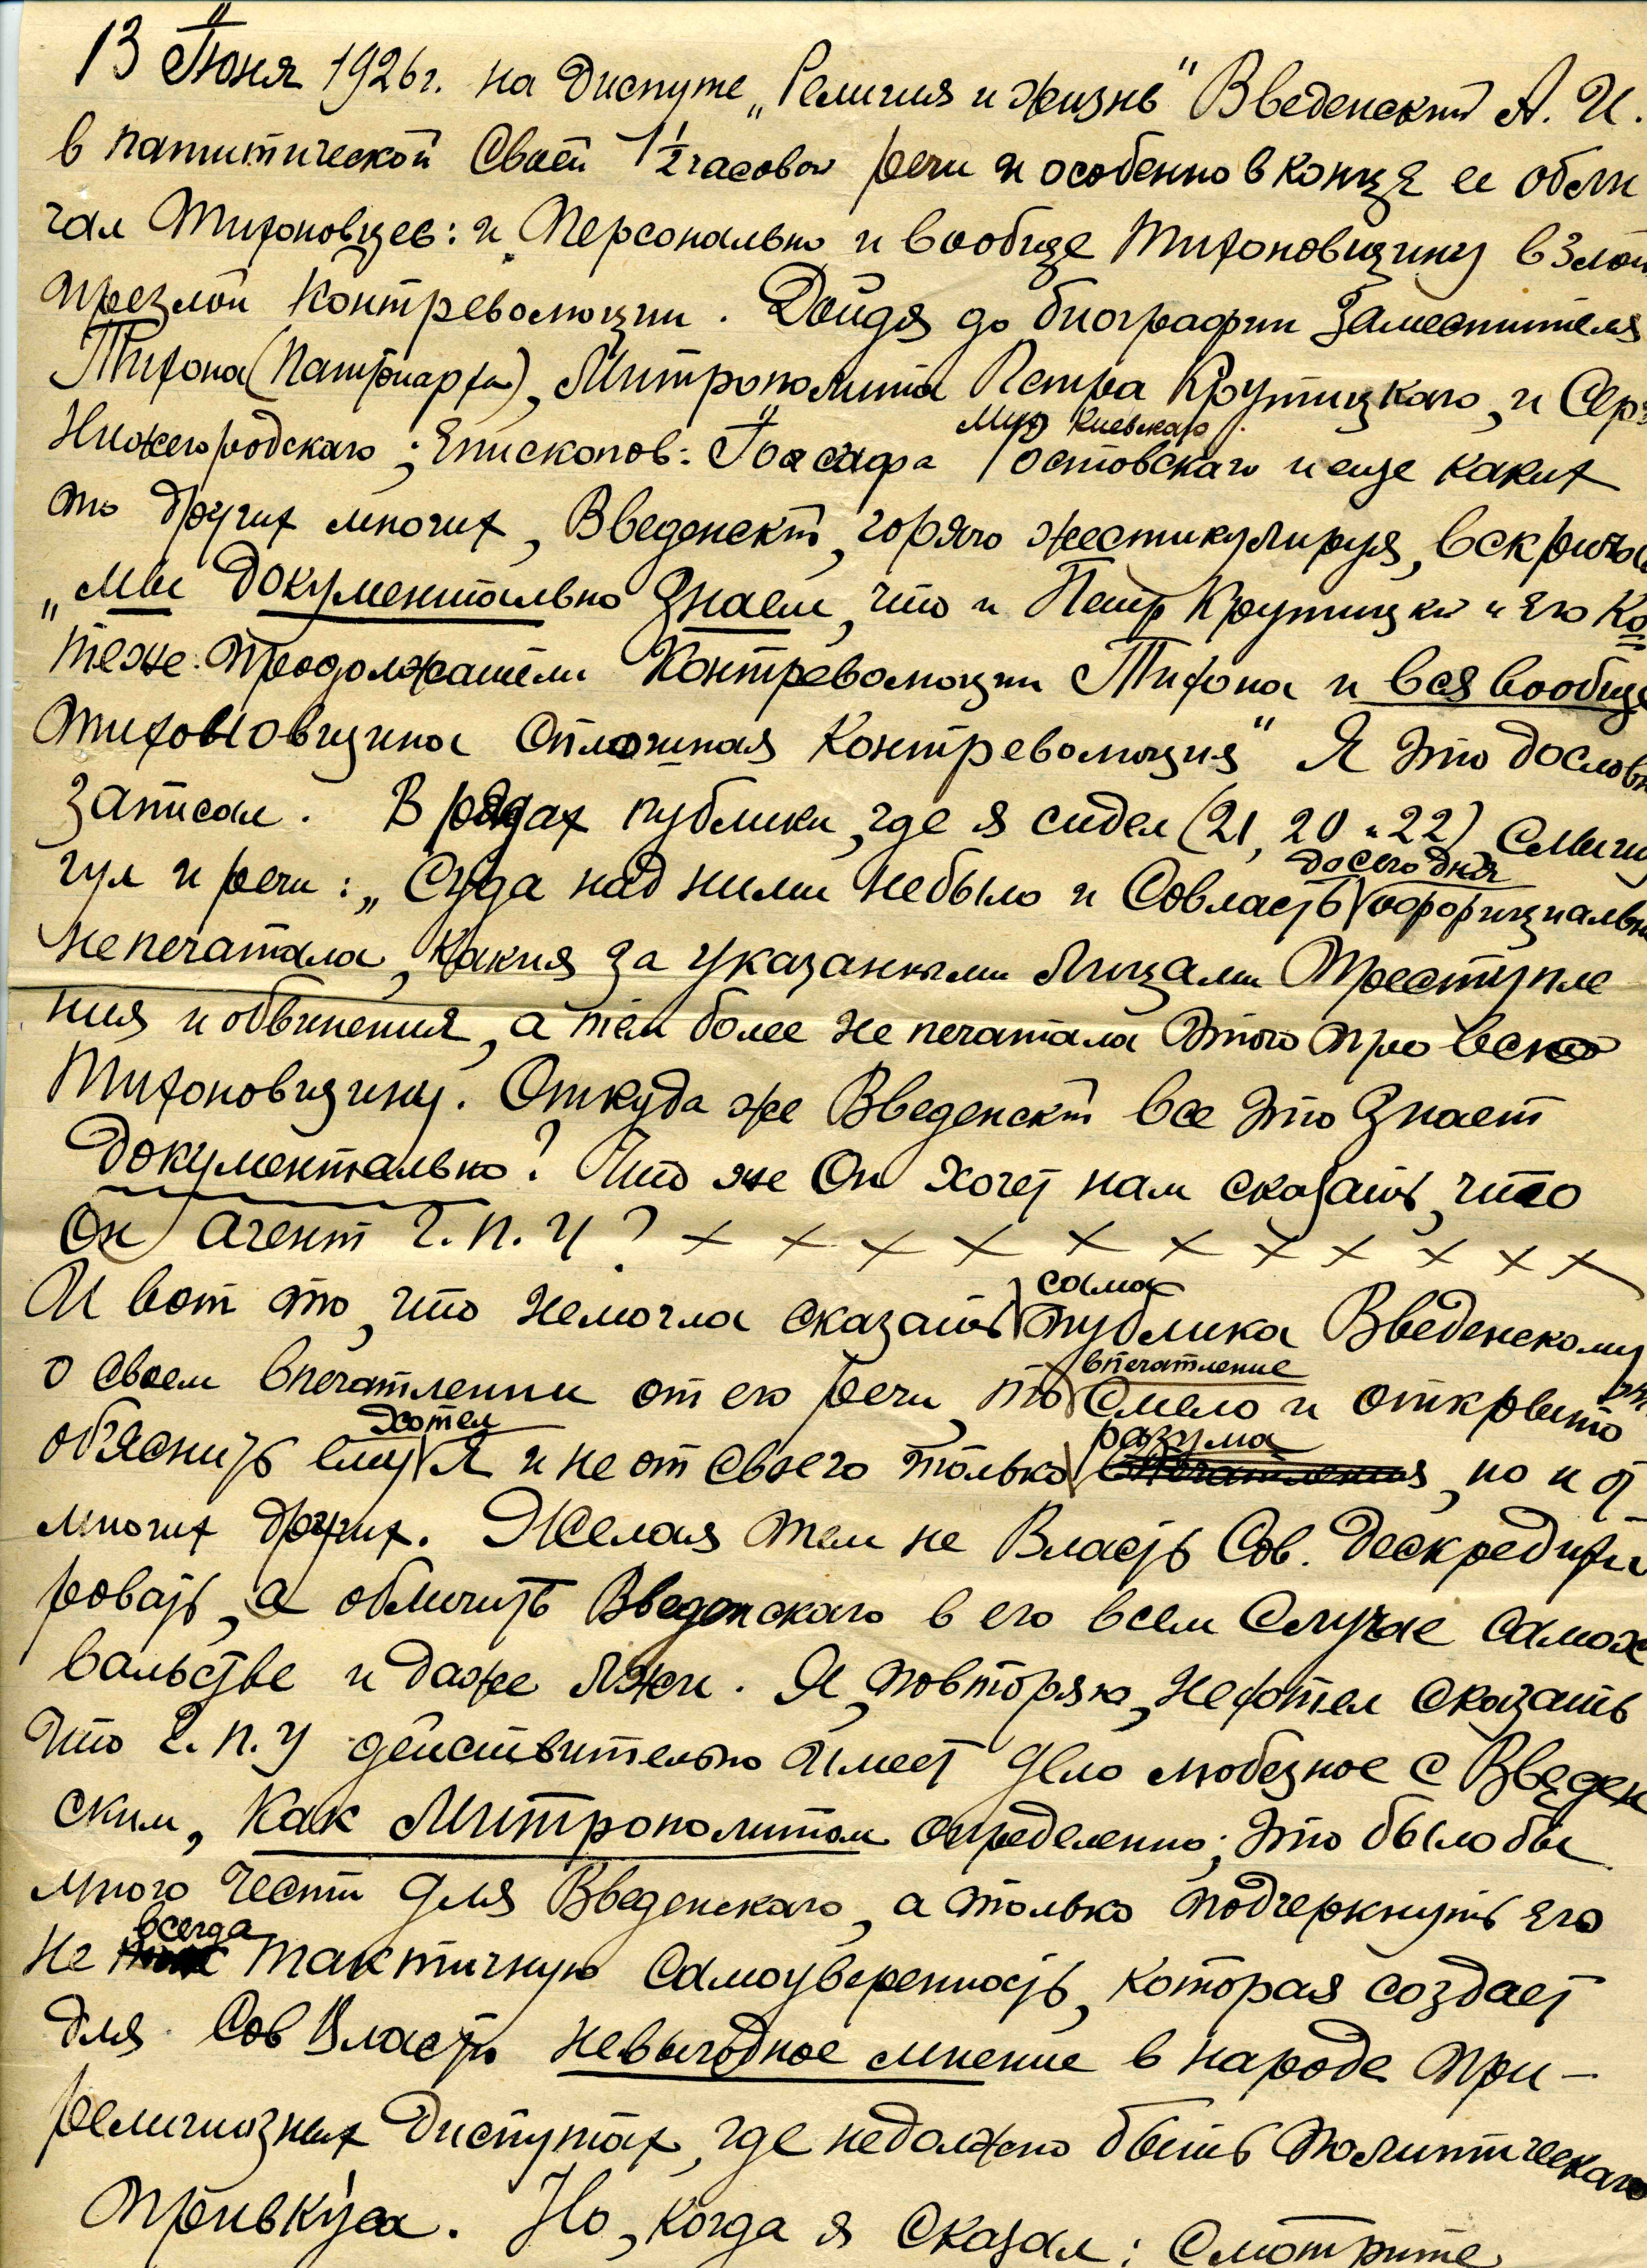 13 Їюня 1926г. на Диспуте „Религия и жизнь" Введенский А. И.
в патитической Своей 1½ часовой речи и особенно в конце ее обли
чал Тихоновцев: и персонально и вообще Тихоновщину в злой
презлой Контреволюции. Дойдя до биографии Заместителя
Тихона (Патриарха), Митрополита Петра Крутицкаго, и Сер
Мих Киевскаго
Нижегородскаго; Епископов: Їоасафа Ростовскаго и еще каких
то других многих, Введенский, горячо жестикулируя, вскричал
„мы документально знаем, что и Петр Крутицкий и его Ко
теже продолжатели Контреволюции Тихона и вся вообще
тихоновщина Сплошная Контреволюция" Я это дословн
записал. В рядах публики, где я сидел (21, 20 и 22) Слышу
до сего дня
гул и речи: „Суда над ними небыло и Совласть оффициальн
непечатала, какия за указанными Лицами Преступле
ния и обвинения, а тем более не печатала этого про всю
Тихоновщину. Откуда же Введенский все это знает
документально? Что же Он хочет нам сказать, что
Он агент Г.П.У? × × × × × × × × × × ×
сама
И вот то, что немогла сказать публика Введенскому
впечатление
о своем впечатлении от его речи, то Смело и открыто
хотел разума
объяснить ему Я и не от своего только впечатления, но и от
многих других. Желая тем не Власть Сов. дескредити
ровать, а обличить Введенскаго в его всем Случае самох
вальстве и даже лжи. Я, повторяю, нехотел сказать
что Г.П.У действительно имеет дело любезное с Введен
ским, как Митрополитом определенно; это было бы
много чести для Введенскаго, а только подчеркнуть его
всегда
не тактичную самоуверенность, которая создает
для Сов Власти невыгодное мнение в народе при-
религиозных диспутах, где недолжно быть политическаго
привкуса. Но, когда я сказал: Смотрите